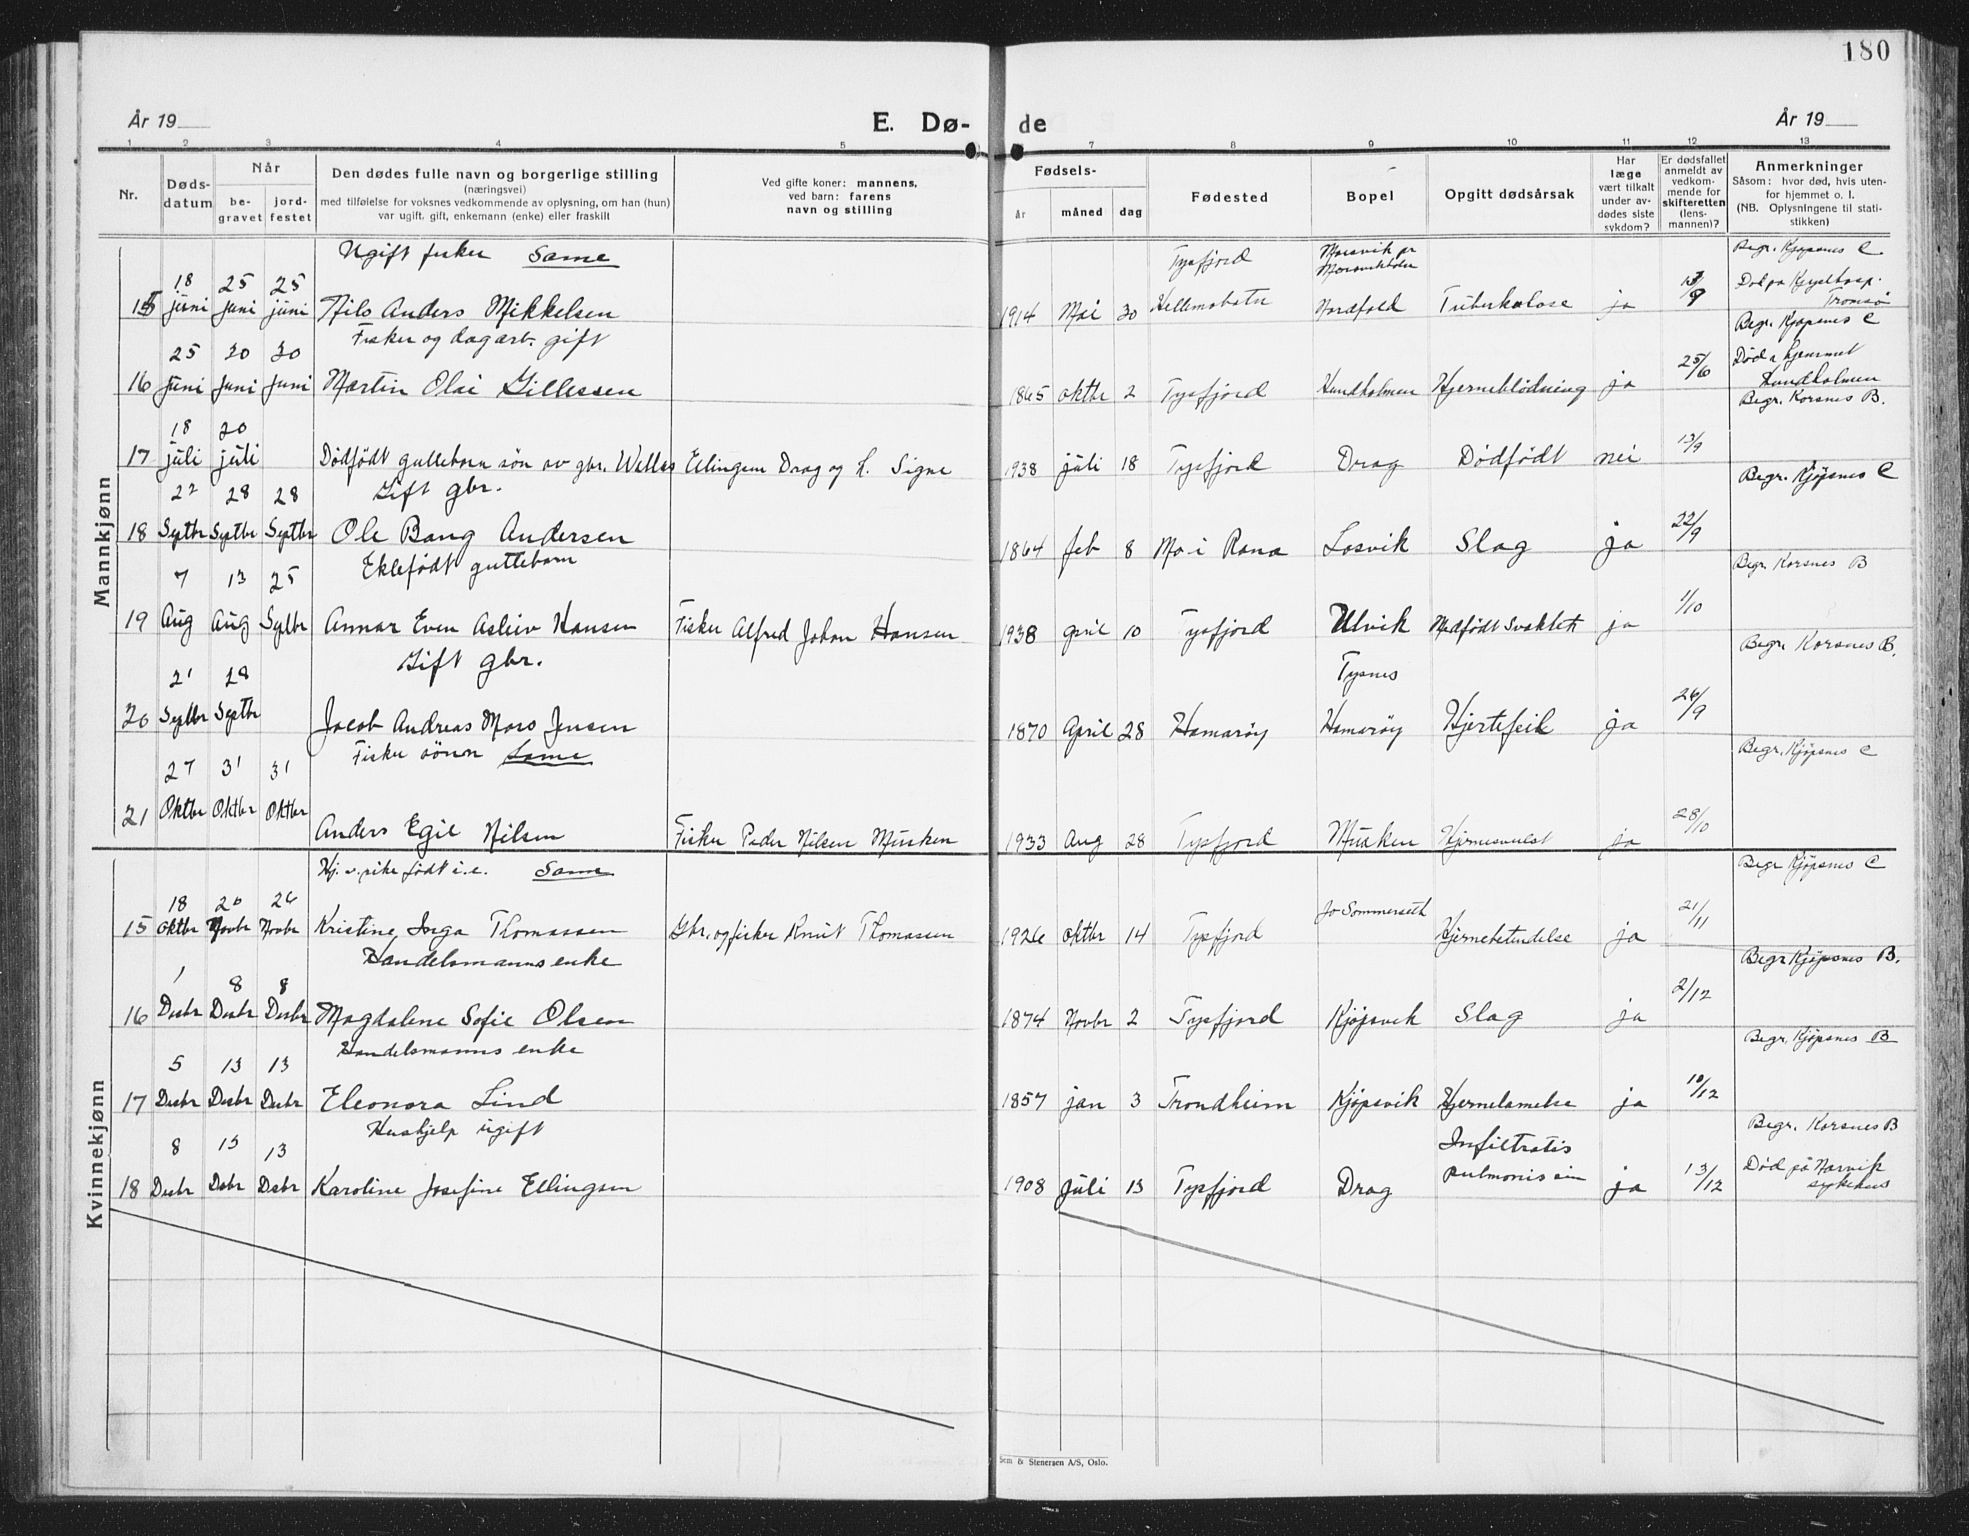 180
År 19
E. Dø-
de
År 19
1 2 3 4 5 7 8 9 10 11 12 13
Nr.
Døds-
datum
Når
be-
gravet
jord-
festet
Den dødes fulle navn og borgerlige stilling
(næringsvei)
med tilføielse for voksnes vedkommende av oplysning, om han (hun)
var ugift, gift, enkemann (enke) eller fraskilt
Ved gifte koner: mannens,
ved barn: farens
navn og stilling
Fødsels-
år måned dag
Fødested
Bopel
Opgitt dødsårsak
Har
læge
vært tilkalt
under av-
dødes siste
sykdom?
Er dødsfallet
anmeldt av
vedkom-
mende for
skifteretten
(lens-
mannen)?
Anmerkninger
Såsom: hvor død, hvis uten-
for hjemmet o. l.
(NB. Oplysningene til stati-
stikken)
Mannkjønn
Ugift fisker Same
Tysfjord
Begr. Kjøpsnes C
18 25 25
15 juni juni juni Nils Anders Mikkelsen 1914 Mai 30 Hellemobotn Nordfold Tuberkulose ja
Tromsø
Fisker og dagarb. gift
Begr. Kjøpsnes C
25 30 30
25/6 Død i hjemmet
16 juni juni juni Martin Olai Gillessen 1865 oktbr 2 Tysfjord Hundholmen Hjerneblödning ja
Hundholmen
Begr. Korsnes B.
18 20
17 juli juli Dødfødt guttebarn sön av gbr. Ellingsen Drag og h. Signe 1938 juli 18 Tysfjord Drag Dødfødt nei 13/9
Gift gbr.
Begr. Kjøpsnes C
22 28 28
18 Septbr Septbr Septbr Ole Bang Andersen 1864 feb 8 Mo i Rana Losvik Slag ja 22/9
Ektefødt guttebarn
Begr. Korsnes B
7 13 25
19 Aug Aug Septbr Even Hansen Fisker Alfred Johan Hansen 1938 april 10 Tysfjord Ulvik Medfödt Svakhet ja 1/10
Gift gbr.
Tysnes
Begr. Korsnes B.
21 28
20 Septbr Septbr Jacob Andreas Jensen 1870 April 28 Hamarøy Hamarøy Hjertefeil ja 26/9
Fisker sönn Same
Begr. Kjøpsnes C
27 31 31
21 Oktbr Oktbr Oktbr Anders Egil Nilsen Fisker Peder Nilsen Musken 1933 Aug 28 Tysfjord Musken Hjernesvulst ja 28/10
Kvinnekjønn
Hj. v. pike født i.e. Same
Begr Kjøpsnes C
18 26 26
15 oktbr Novbr Novbr Kristine Inga Thomassen Gbr. og fisker Knut Thomassen 1926 oktbr 14 Tysfjord Sommerseth Hjernebetendelse ja 21/11
Handelsmanns enke
Begr Kjøpsnes B.
1 8 8
16 Desbr Desbr Desbr Magdalene Sofie Olsen 1874 Novbr 2 Tysfjord Kjøpsvik Slag ja 2/12
Handelsmanns enke
Begr. Kjøpsnes B
5 13 13
17 Desbr Desbr Desbr Eleonora Lind 1857 jan 3 Trondheim Kjøpsvik Hjernelamelse ja 10/12
Hushjelp ugift
Infiltratis
Begr. Korsnes B
8 13 13
pulmonis sin
Død på Narvik
18 Desbr Desbr Desbr Karoline Josefine Ellingsen 1908 Juli 13 Tysfjord Drag ja 13/12
sykehus
Sem & Stenersen A/S, Oslo.